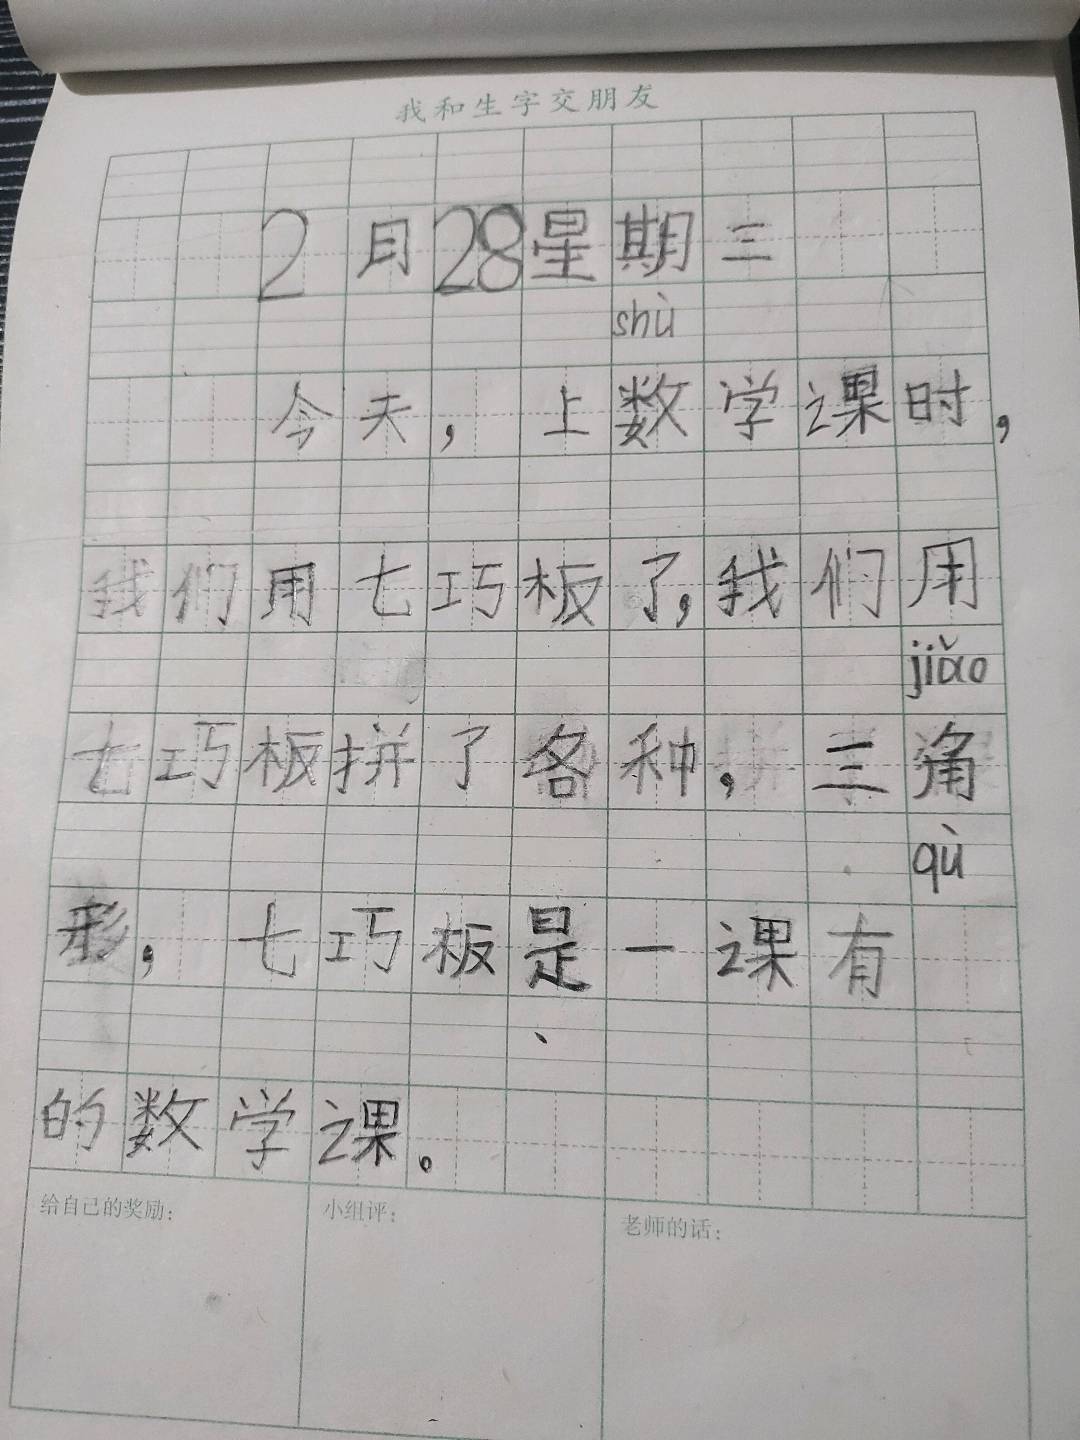 我和生字交朋友
2月28星期三
shù
今天，上数学课时，
我们用七巧板了，我们用
jiǎo
七巧板拼了各种，三角
qù
形，七巧板是一课有
的数学课。
给自己的奖励：
小组评：
老师的话：